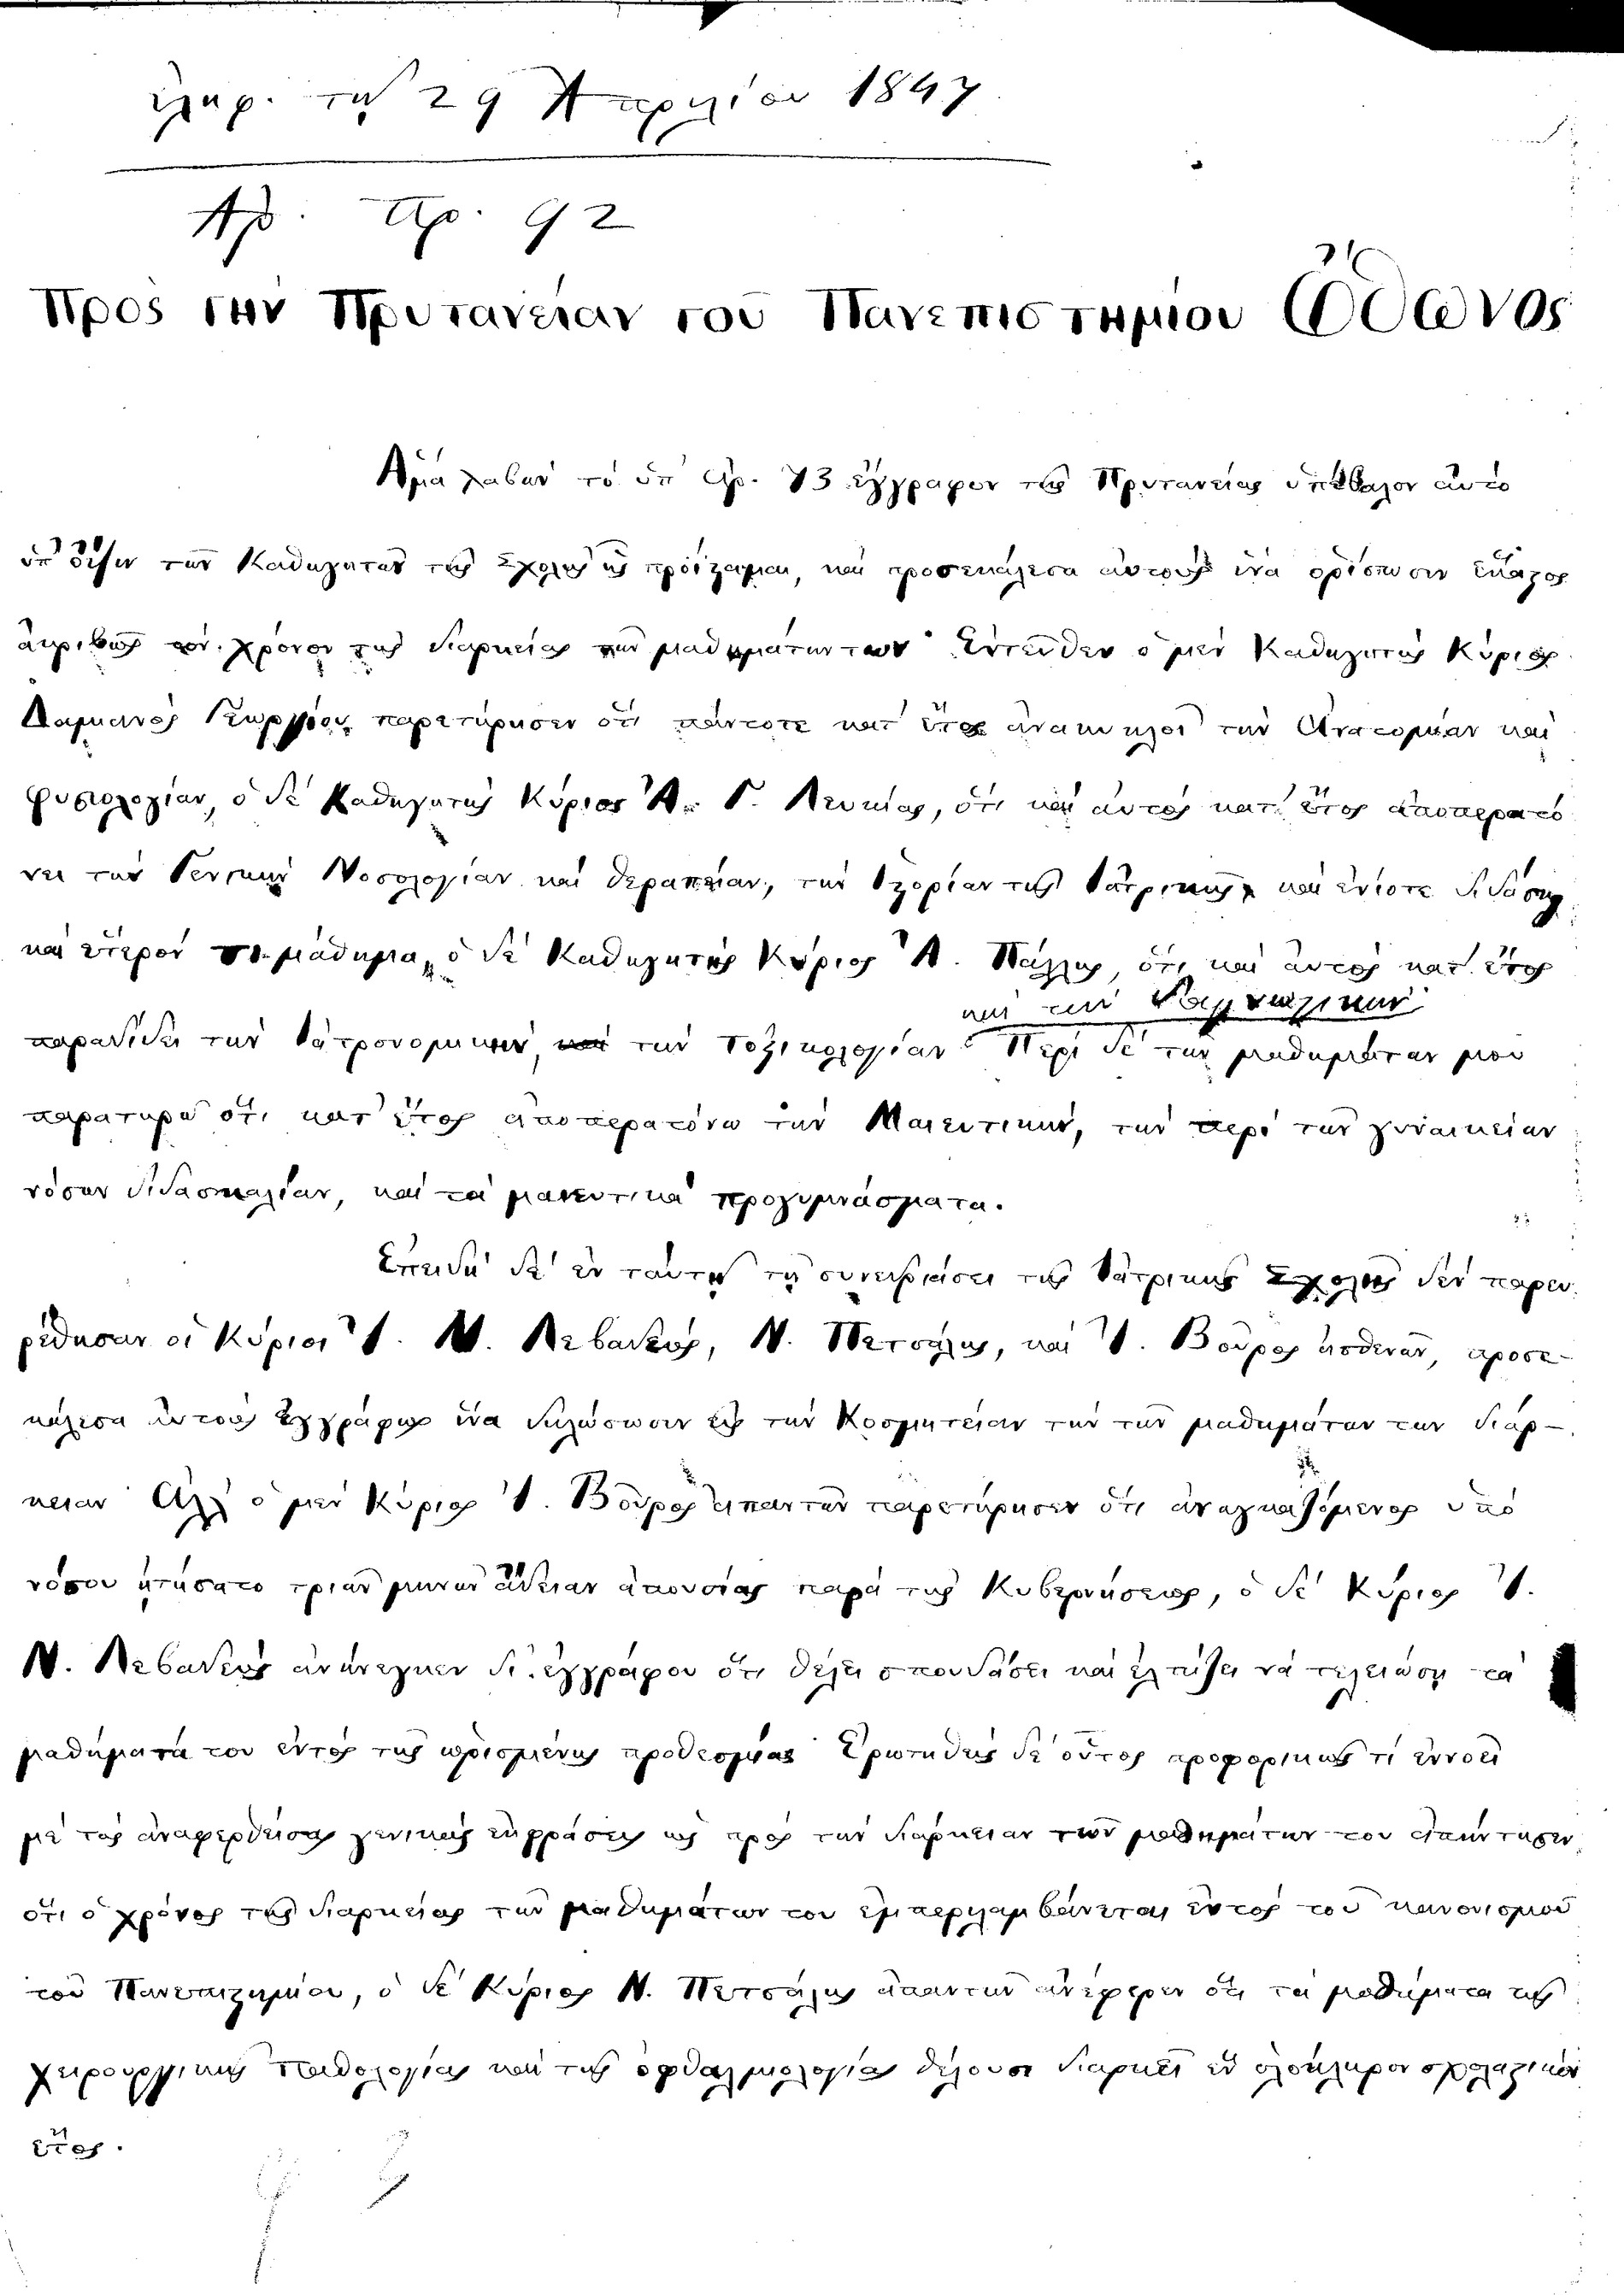 ἐλήφ. τῇ 29 Ἀπριλίου 1847
Ἀρ. Πρ. 92
Πρὸς τὴν Πρυτανείαν τοῦ Πανεπιστημίου Ὄθωνος
Ἅμα λαβὼν τὸ ὑπ' Ἀρ. 73 ἔγγραφον τῆς Πρυτανείας ὑπέβαλον αὐτὸ
ὑπ' ὄψιν τῶν Καθηγητῶν τῆς Σχολῆς ἧς προΐσταμαι, καὶ προσεκάλεσα αὐτοὺς ἵνα ὁρίσωσιν ἕκαστος
ἀκριβῶς τὸν χρόνον τῆς διαρκείας τῶν μαθημάτων των· Ἐντεῦθεν ὁ μὲν Καθηγητὴς Κύριος
Δαμιανὸς Γεωργίου παρετήρησεν ὅτι πάντοτε κατ' ἔτος ἀνακυκλοῖ τὴν Ἀνατομίαν καὶ
φυσιολογίαν, ὁ δὲ Καθηγητὴς Κύριος Ἀ. Γ. Λευκίας, ὅτι καὶ αὐτὸς κατ' ἔτος ἀποπερατό
νει τὴν Γενικὴν Νοσολογίαν καὶ θεραπείαν, τὴν Ἱστορίαν τῆς Ἰατρικῆς καὶ ἐνίοτε διδάσκει
καὶ ἕτερόν τι μάθημα, ὁ δὲ Καθηγητὴς Κύριος Ἀ. Πάλλης, ὅτι καὶ αὐτὸς κατ' ἔτος
καὶ τὴν Γαλβανικὴν
παραδίδει τὴν Ἰατρονομικήν, καὶ τὴν Τοξικολογίαν· Περὶ δὲ τῶν μαθημάτων μου
παρατηρῶ ὅτι κατ' ἔτος ἀποπερατόνω τὴν Μαιευτικήν, τὴν περὶ τῶν γυναικείων
νόσων διδασκαλίαν, καὶ τὰ μαιευτικὰ προγυμνάσματα.
Ἐπειδὴ δὲ ἐν ταύτῃ τῇ συνεδριάσει τῆς Ἰατρικῆς Σχολῆς δὲν παρευ
ρέθησαν οἱ Κύριοι Ἰ. Ν. Λεβαδεύς, Ν. Πετσάλης, καὶ Ἰ. Βοῦρος ἀσθενῶν, προσε-
κάλεσα αὐτοὺς ἐγγράφως ἵνα δηλώσωσιν εἰς τὴν Κοσμητείαν τὴν τῶν μαθημάτων των διάρ-
κειαν· Ἀλλ' ὁ μὲν Κύριος Ἰ. Βοῦρος ἀπαντῶν παρετήρησεν ὅτι ἀναγκαζόμενος ὑπὸ
νόσου ᾐτήσατο τριῶν μηνῶν ἄδειαν ἀπουσίας παρὰ τῆς Κυβερνήσεως, ὁ δὲ Κύριος Ἰ.
Ν. Λεβαδεὺς ἀνήνεγκεν δι' ἐγγράφου ὅτι θέλει σπουδάσει καὶ ἐλπίζει νὰ τελειώσῃ τὰ
μαθήματά του ἐντὸς τῆς ὡρισμένης προθεσμίας· Ἐρωτηθεὶς δὲ οὗτος προφορικῶς τί ἐννοεῖ
μὲ τὰς ἀναφερθείσας γενικὰς ἐκφράσεις ὡς πρὸς τὴν διάρκειαν τῶν μαθημάτων του ἀπήντησεν
ὅτι ὁ χρόνος τῆς διαρκείας τῶν μαθημάτων του ἐμπεριλαμβάνεται ἐντὸς τοῦ κανονισμοῦ
τοῦ Πανεπιστημίου, ὁ δὲ Κύριος Ν. Πετσάλης ἀπαντῶν ἀνέφερεν ὅτι τὰ μαθήματα τῆς
χειρουργικῆς παθολογίας καὶ τῆς ὀφθαλμολογίας θέλουσι διαρκεῖ ἓν ὁλόκληρον σχολαστικὸν
ἔτος.